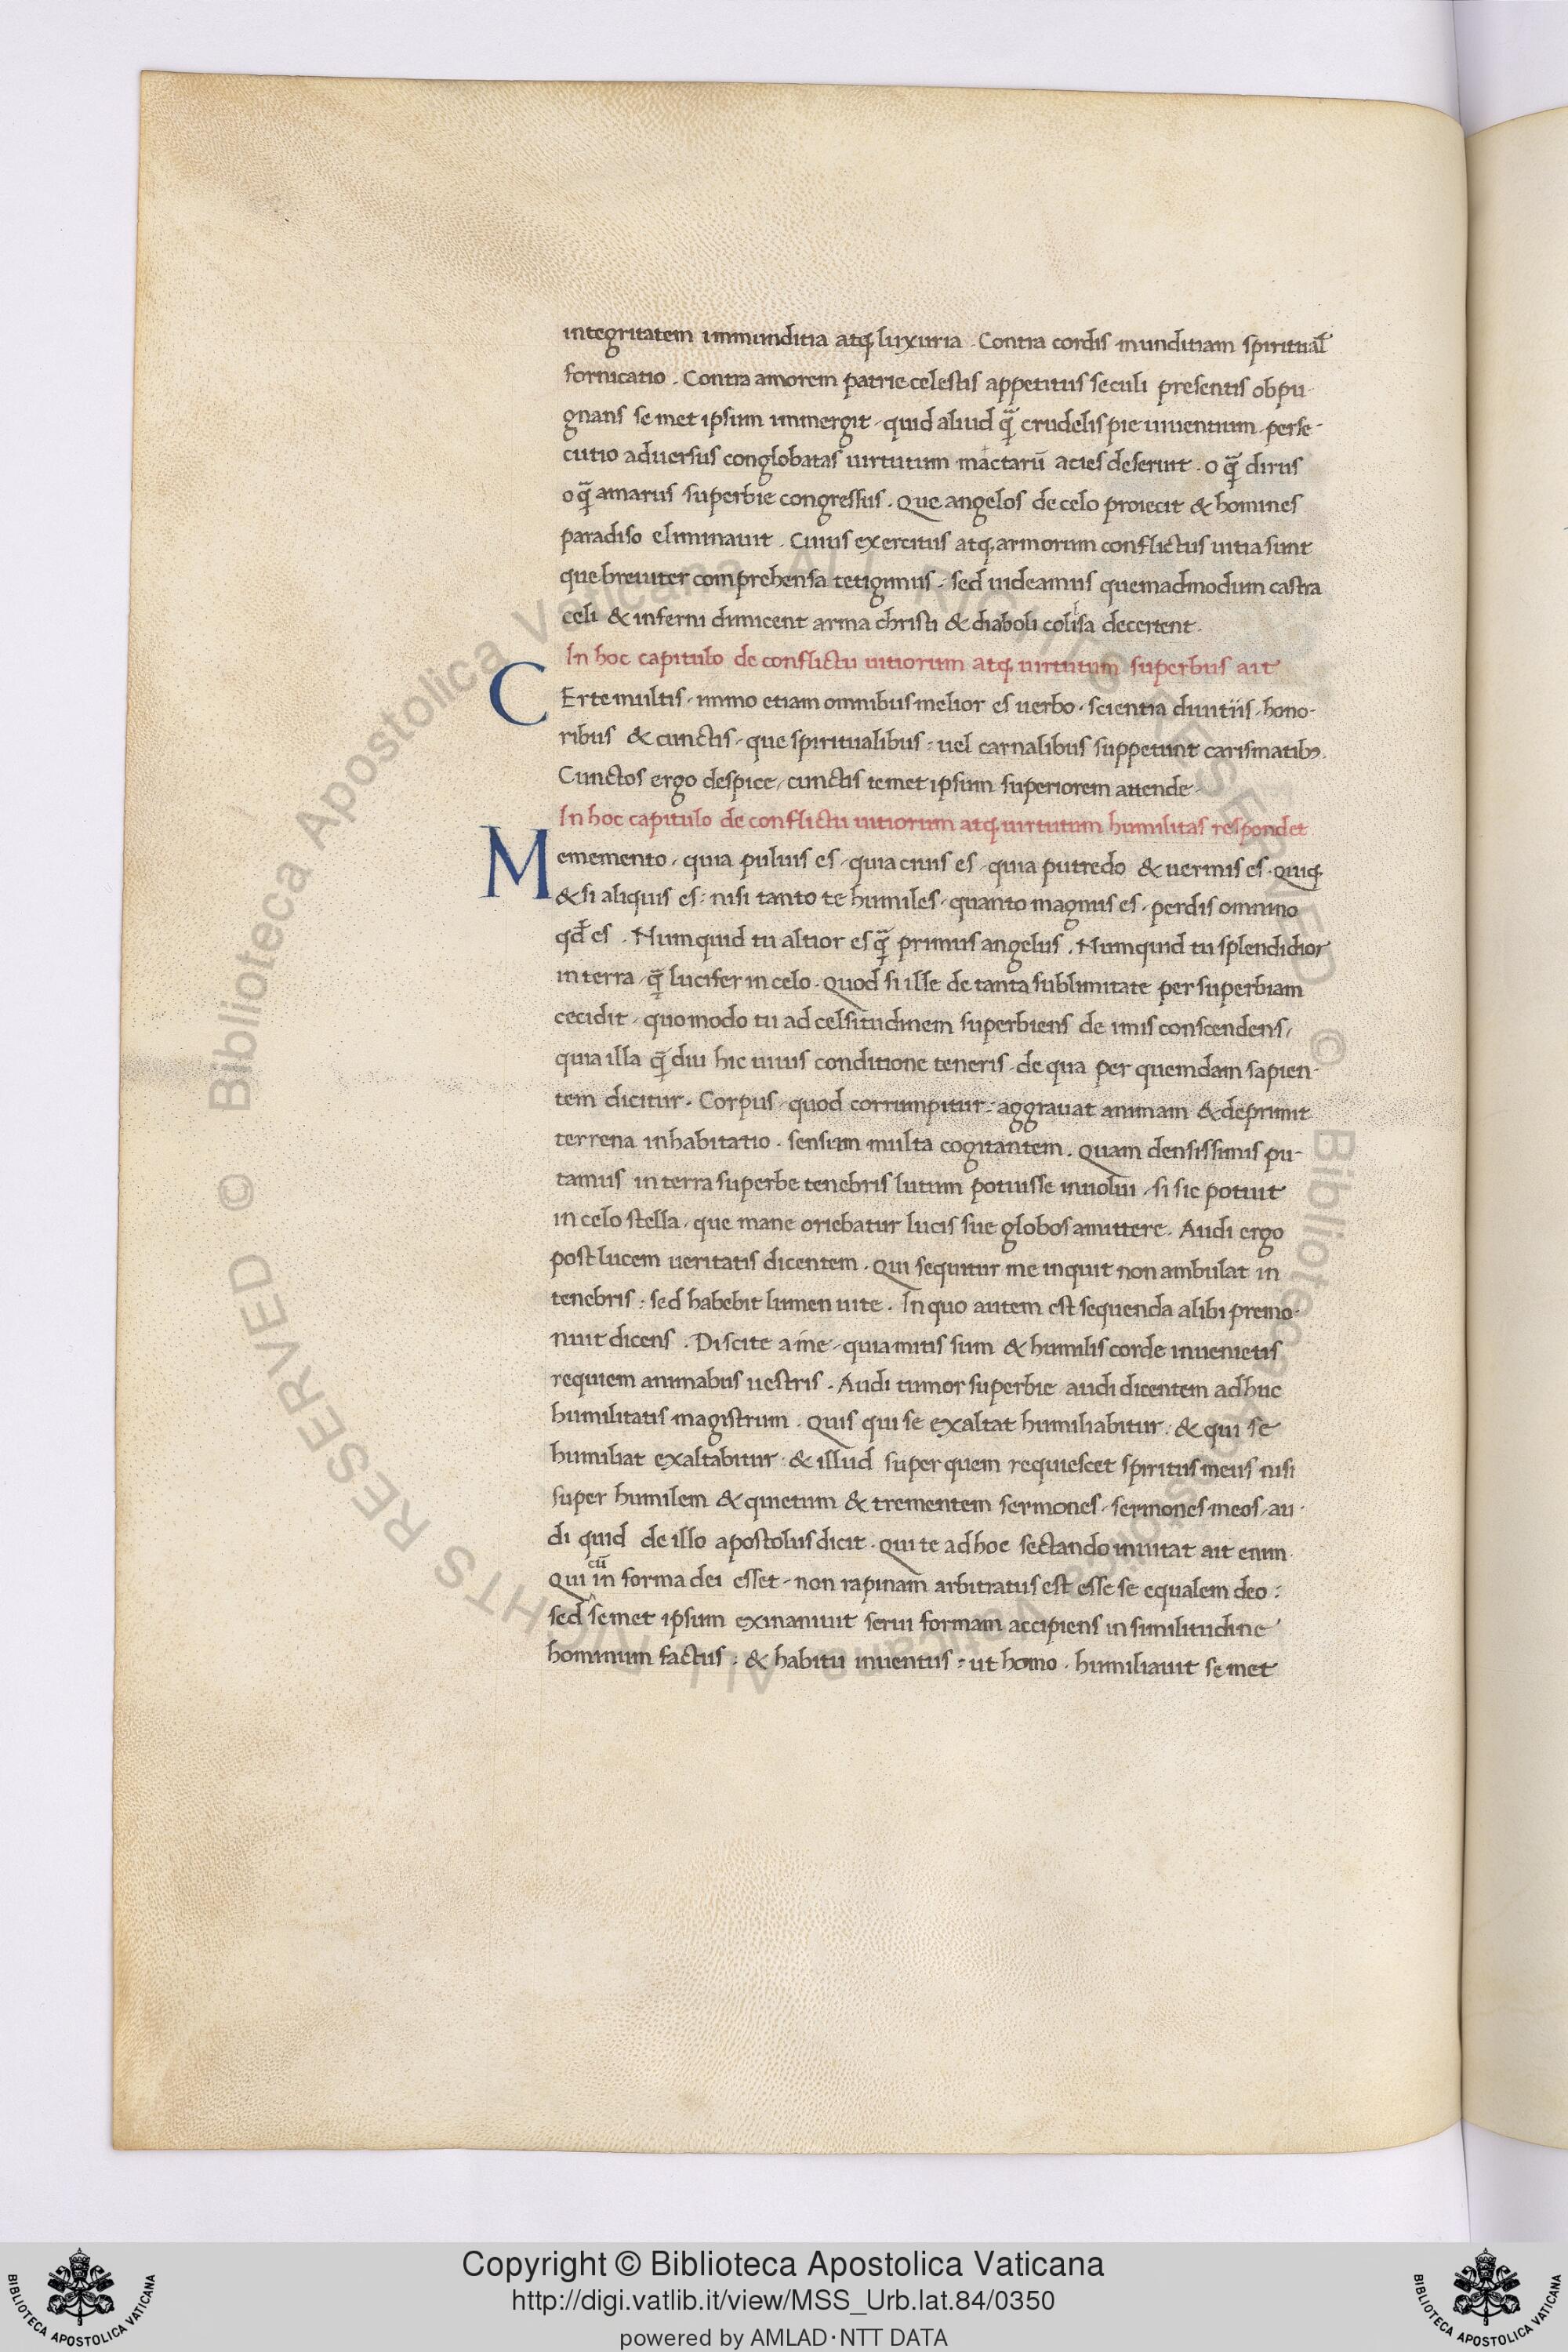 integritatem immunditia atq; luxuria. Contra cordis munditiam spiritual̄
fornicatio. Contra amorem patrie celestis appetitus seculi presentis obpu-
gnans semet ipsum immergit, quid aliud q̄ crudelis pie uiuentium perse-
cutio aduersus conglobatas uirtutum mactarū acies deserunt. o q̄ dirus
o q̄ amarus superbie congressus. Que angelos de celo proiecit & homines
paradiso eliminauit. Cuius exercitus atq; armorum conflictus uitia sunt
que breuiter comprehensa tetigimus, sed uideamus quemadmodum castra
celi & inferni dimicent arma christi & diaboli colisa decertent.
In hoc capitulo de conflictu uitiorum atq; uirtutum superbus ait
Certe multis, immo etiam omnibus melior es uerbo, scientia diuitiis, hono-
ribus & cunctis, que spiritualibus, uel carnalibus suppetunt carismatibꝫ.
Cunctos ergo despice, cunctis temet ipsum superiorem attende
In hoc capitulo de conflictu uitiorum atq; uirtutum humilitas respondet
Mememento, quia puluis es, quia cinis es, quia putredo & uermis es. Quiq;
& si aliquis es, nisi tanto te humiles, quanto magnus es, perdis omnino
qđ es. Numquid tu altior es q̄ primus angelus. Numquid tu splendidior
in terra, q̄ lucifer in celo. Quod si ille de tanta sublimitate per superbiam
cecidit, quomodo tu ad celsitudinem superbiens de imis conscendens,
quia illa q̄ diu hic uiuis conditione teneris, de qua per quemdam sapien-
tem dicitur. Corpus, quod corrumpitur, aggrauat animam & deprimit
terrena inhabitatio. sensum multa cogitantem. Quam densissimis pu-
tamus in terra superbe tenebris lutum potuisse inuolui, si sic potuit
in celo stella, que mane oriebatur lucis sue globos amittere. Audi ergo
post lucem ueritatis dicentem. Qui sequitur me inquit non ambulat in
tenebris: sed habebit lumen uite. In quo autem est sequenda alibi premo-
nuit dicens. Discite a me, quia mitis sum & humilis corde inuenietis
requiem animabus uestris. Audi tumor superbie audi dicentem adhuc
humilitatis magistrum. Quis qui se exaltat humiliabitur: & qui se
humiliat exaltabitur: & illud super quem requiescet spiritus meus nisi
super humilem & quietum & trementem sermones, sermones meos, au-
di quid de illo apostolus dicit. Qui te ad hoc sectando inuitat ait enim
Qui cū in forma dei esset, non rapinam arbitratus est esse se equalem deo:
sed semet ipsum exinaniuit serui formam accipiens in similitudine
hominum factus: & habitu inuentus, ut homo. humiliauit semet
© Biblioteca Apostolica Vaticana ALL RIGHTS RESERVED
Copyright © Biblioteca Apostolica Vaticana
http://digi.vatlib.it/view/MSS_Urb.lat.84/0350
powered by AMLAD·NTT DATA
BIBLIOTECA APOSTOLICA VATICANA
BIBLIOTECA APOSTOLICA VATICANA